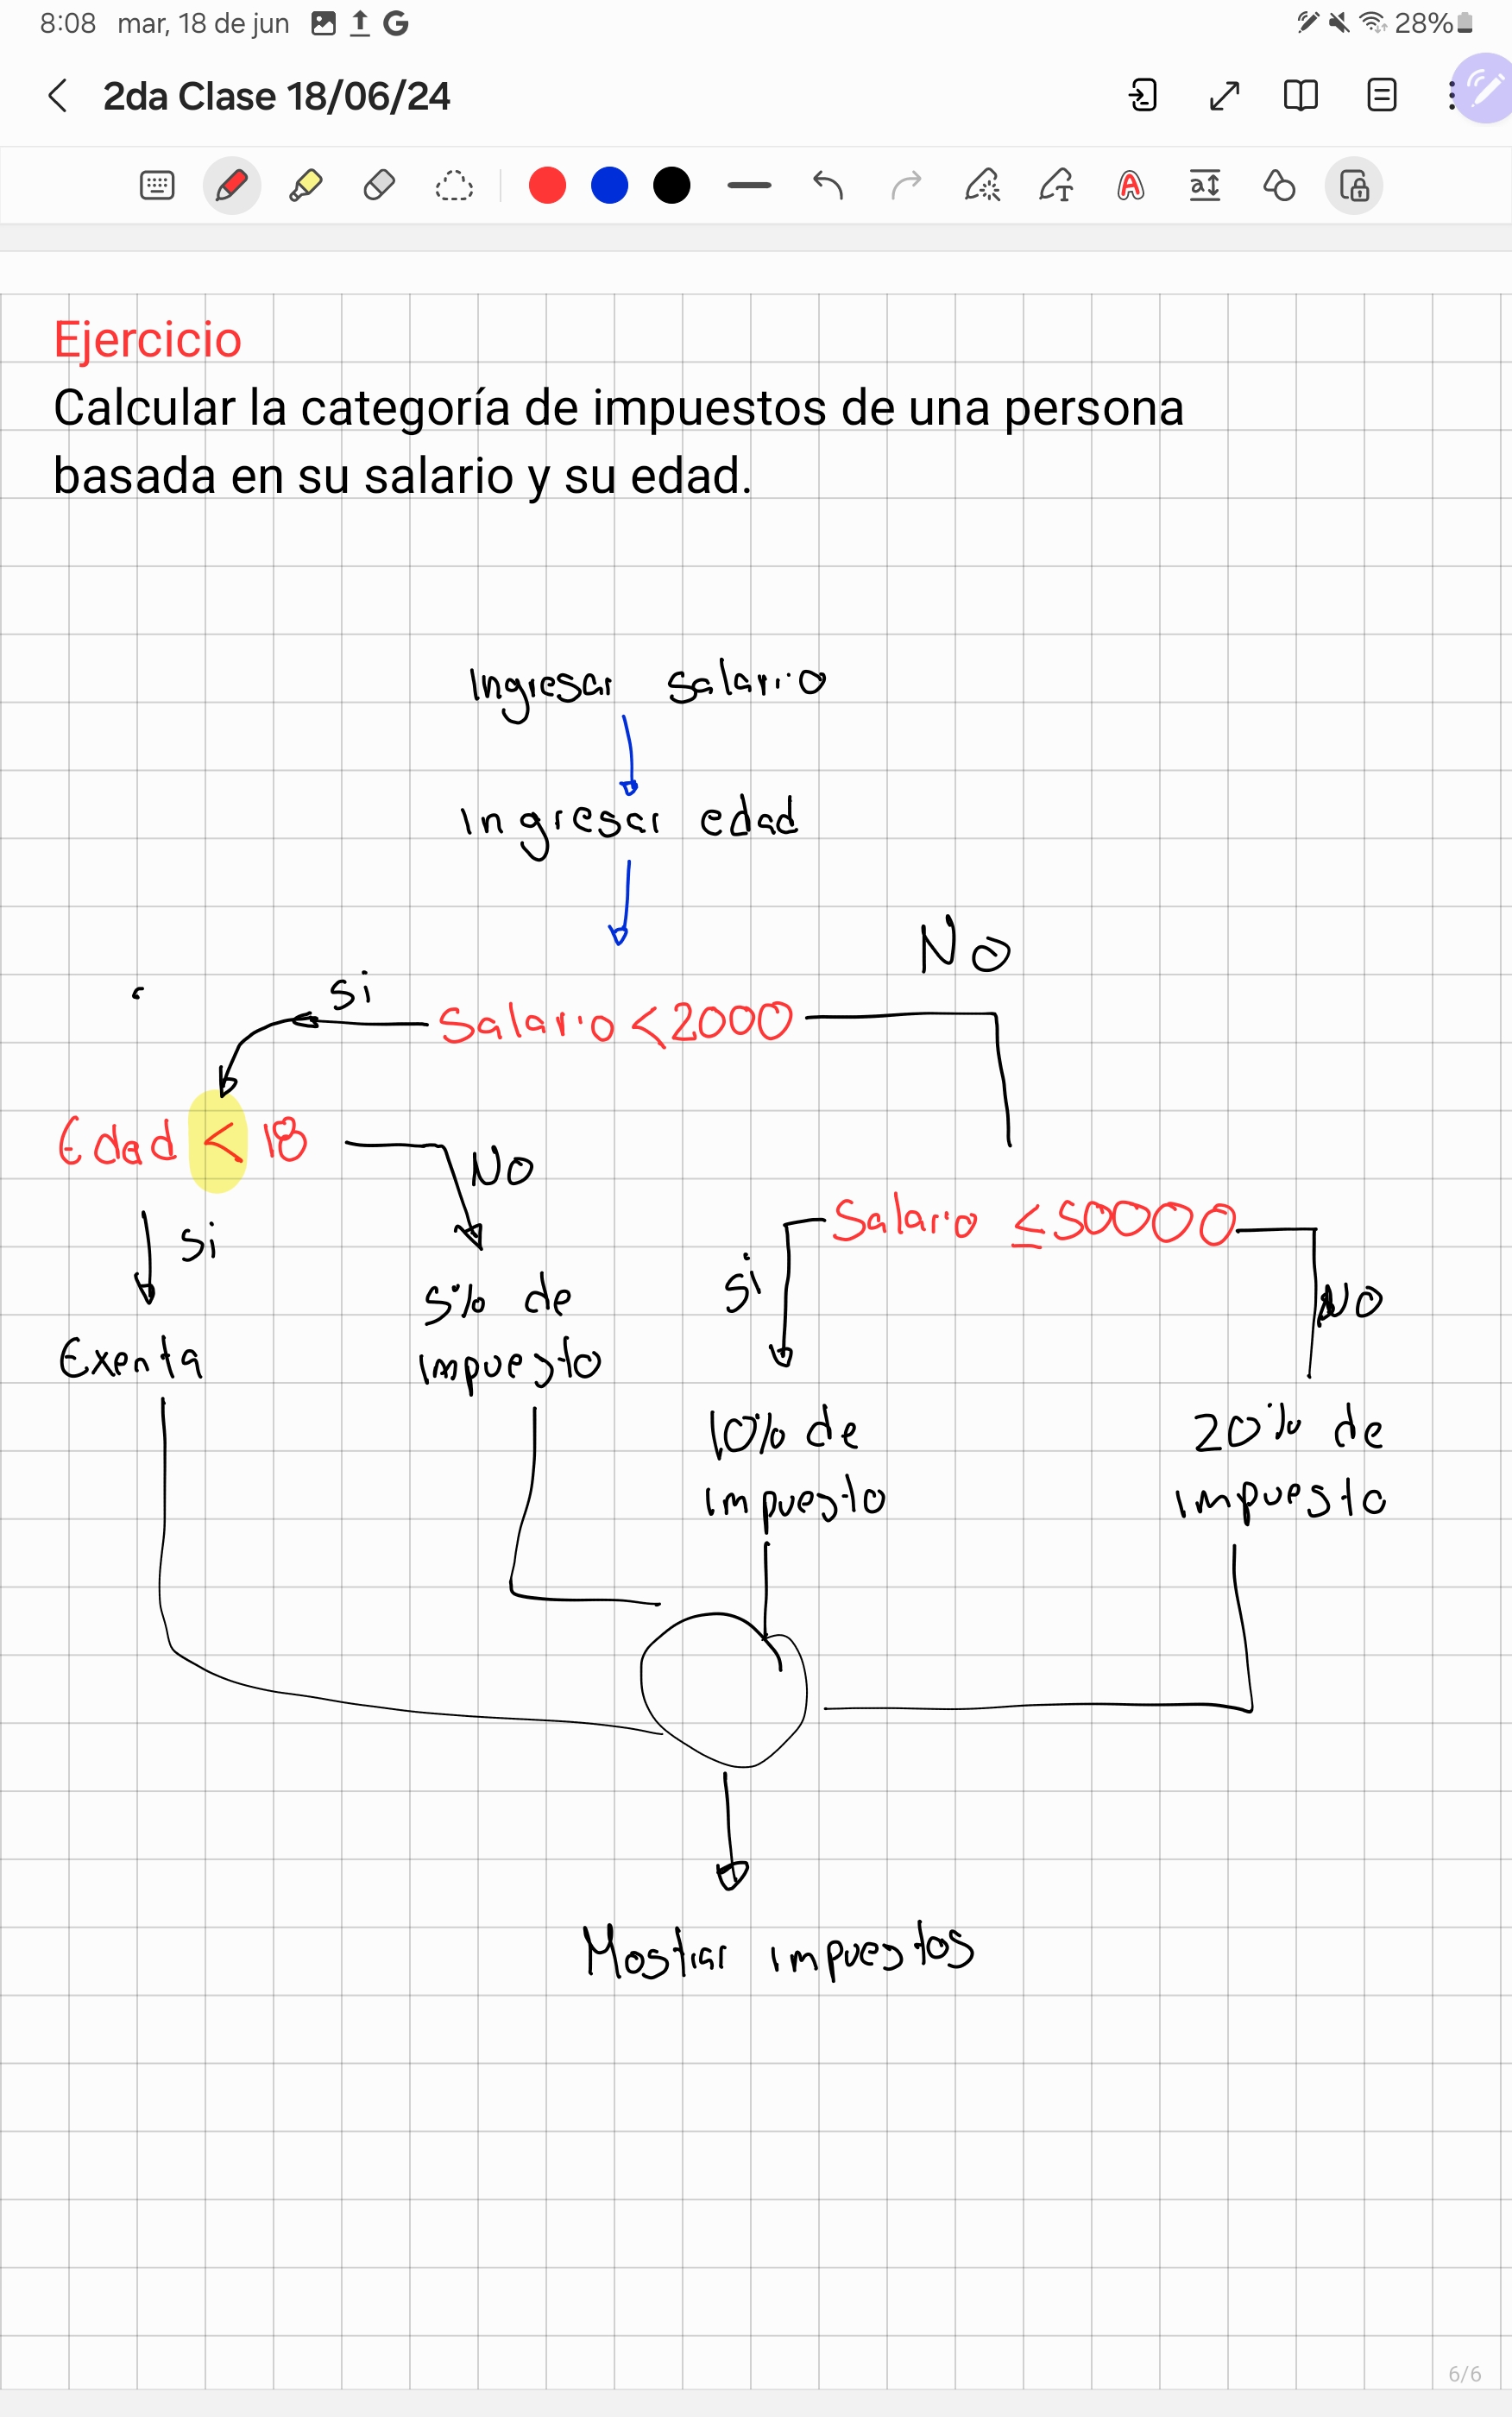 8:08 mar, 18 de jun
28%
2da Clase 18/06/24
Ejercicio
Calcular la categoría de impuestos de una persona
basada en su salario y su edad.
Ingresar salario
Ingresar edad
No
Si
Salario <2000
Edad < 18
No
Si
Salario ≤50000
Si
No
5% de
impuesto
Exenta
10% de
impuesto
20% de
impuesto
Mostrar impuestos
6/6